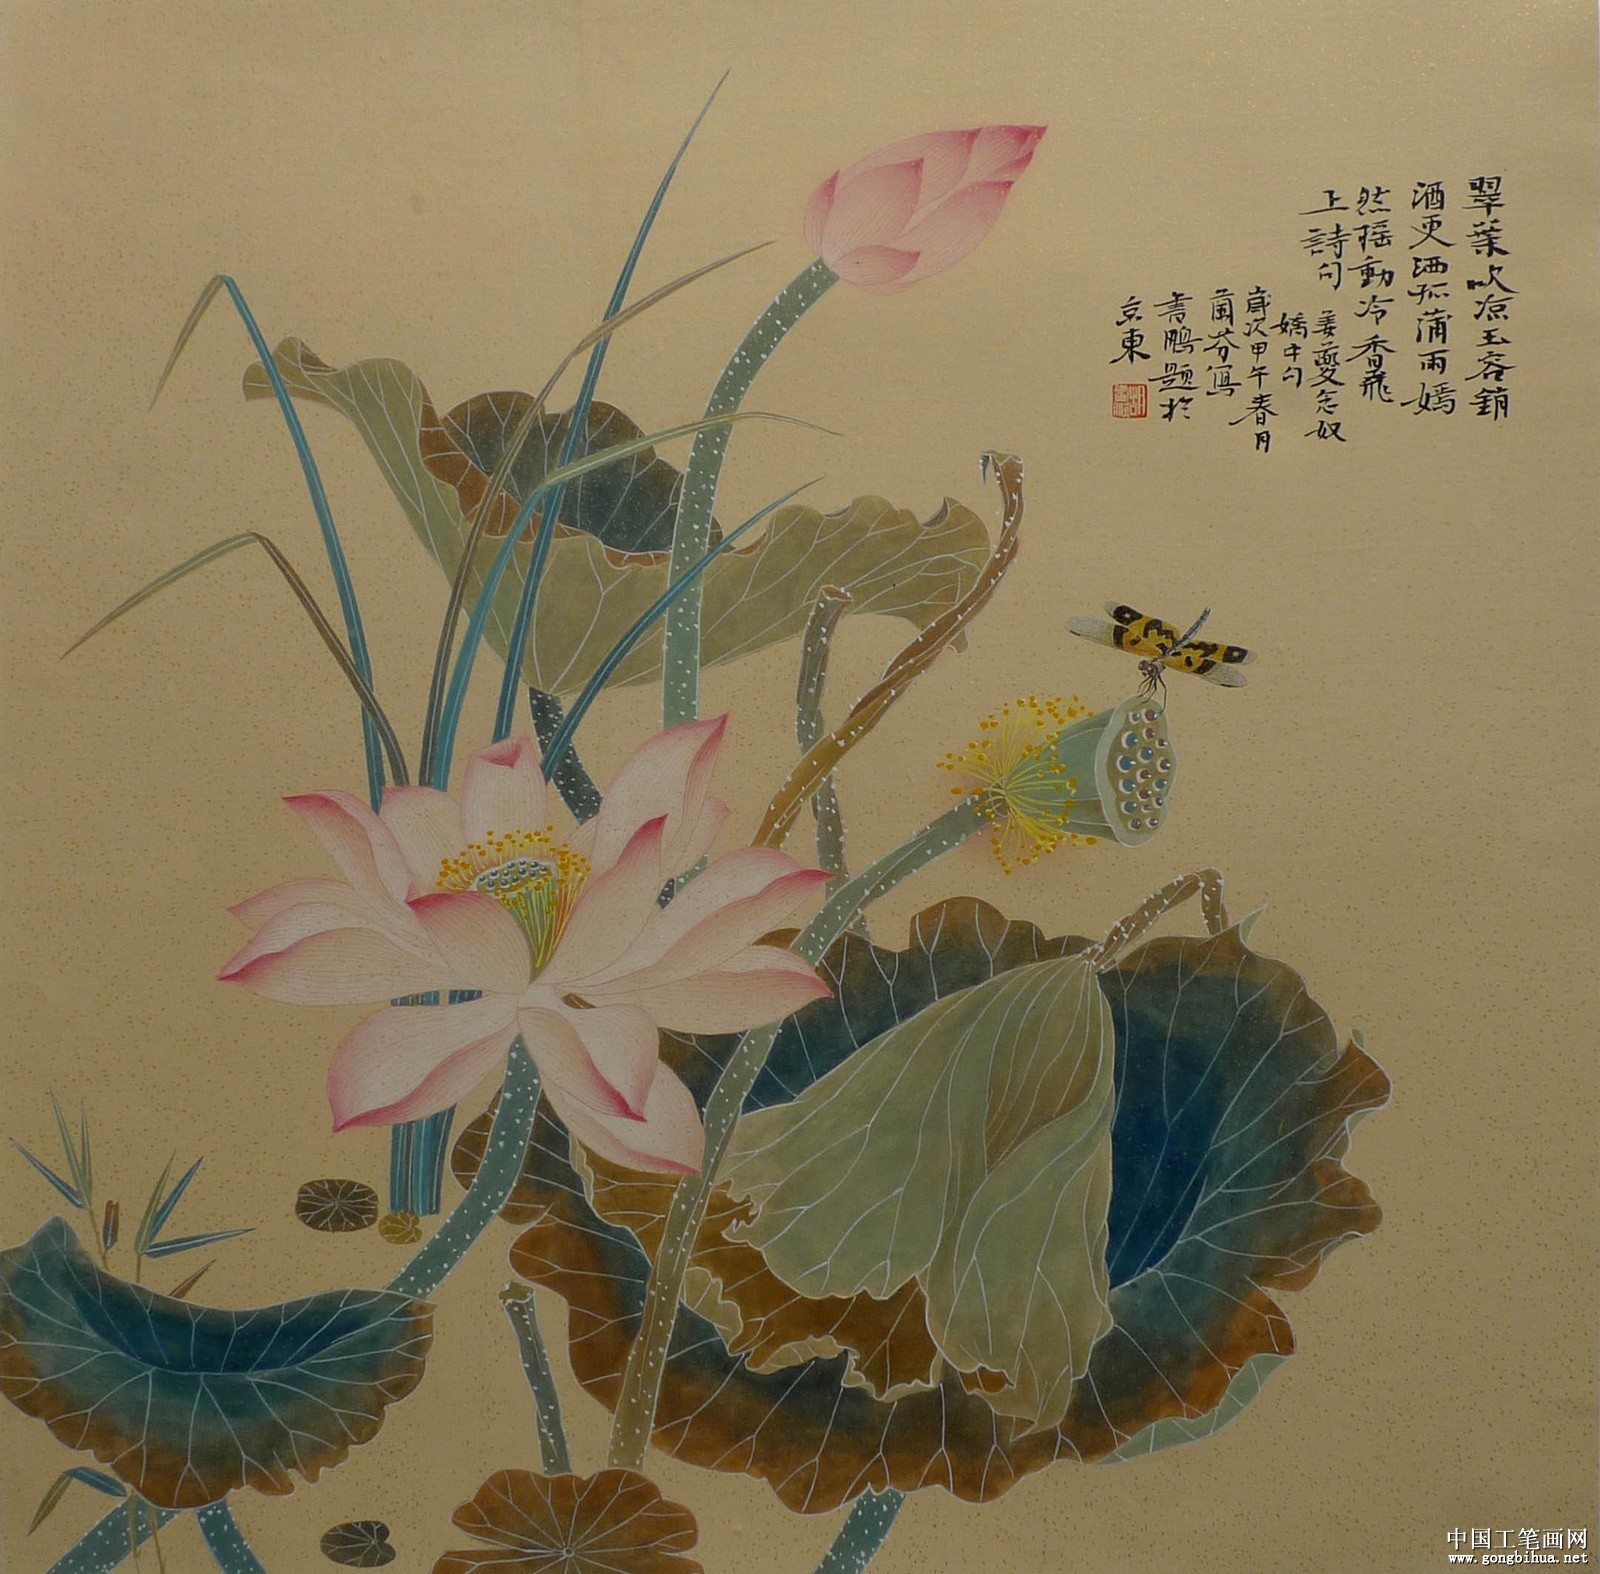 翠葉吹凉玉容銷
酒更洒菰蒲雨嫣
然摇動冷香飛
上詩句
姜夔念奴
嬌中句
歲次甲午春月
蘭芬寫
書鵬题於
京東
中国工笔画网
www.gongbihua.net